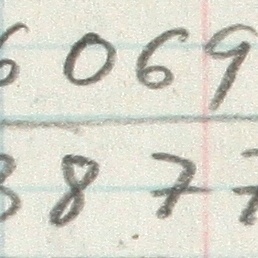 6 0 6 9
8 8 7 7